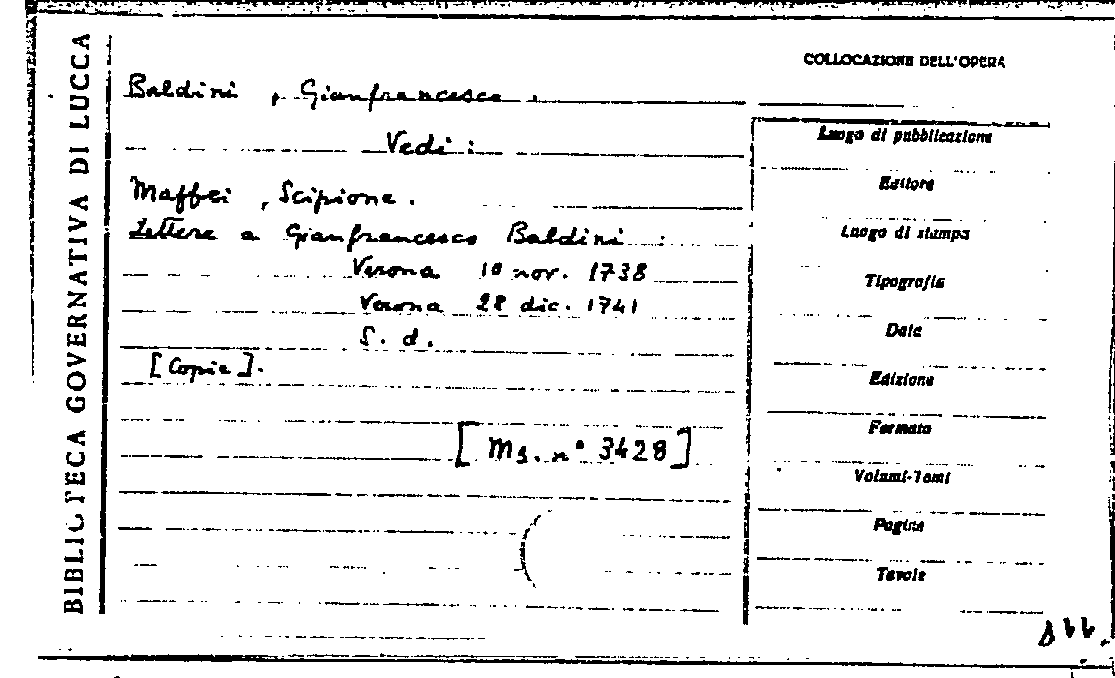 BIBLIOTECA GOVERNATIVA DI LUCCA
Baldini, Gianfrancesco.
Vedi:
Maffei, Scipione.
Lettere a Gianfrancesco Baldini:
Verona 10 nov. 1738
Verona 28 dic. 1741
S. d.
[Copie].
[Ms. n° 3428]
COLLOCAZIONE DELL'OPERA
Luogo di pubblicazione
Editore
Luogo di stampa
Tipografia
Data
Edizione
Formato
Volumi-Tomi
Pagine
Tavole